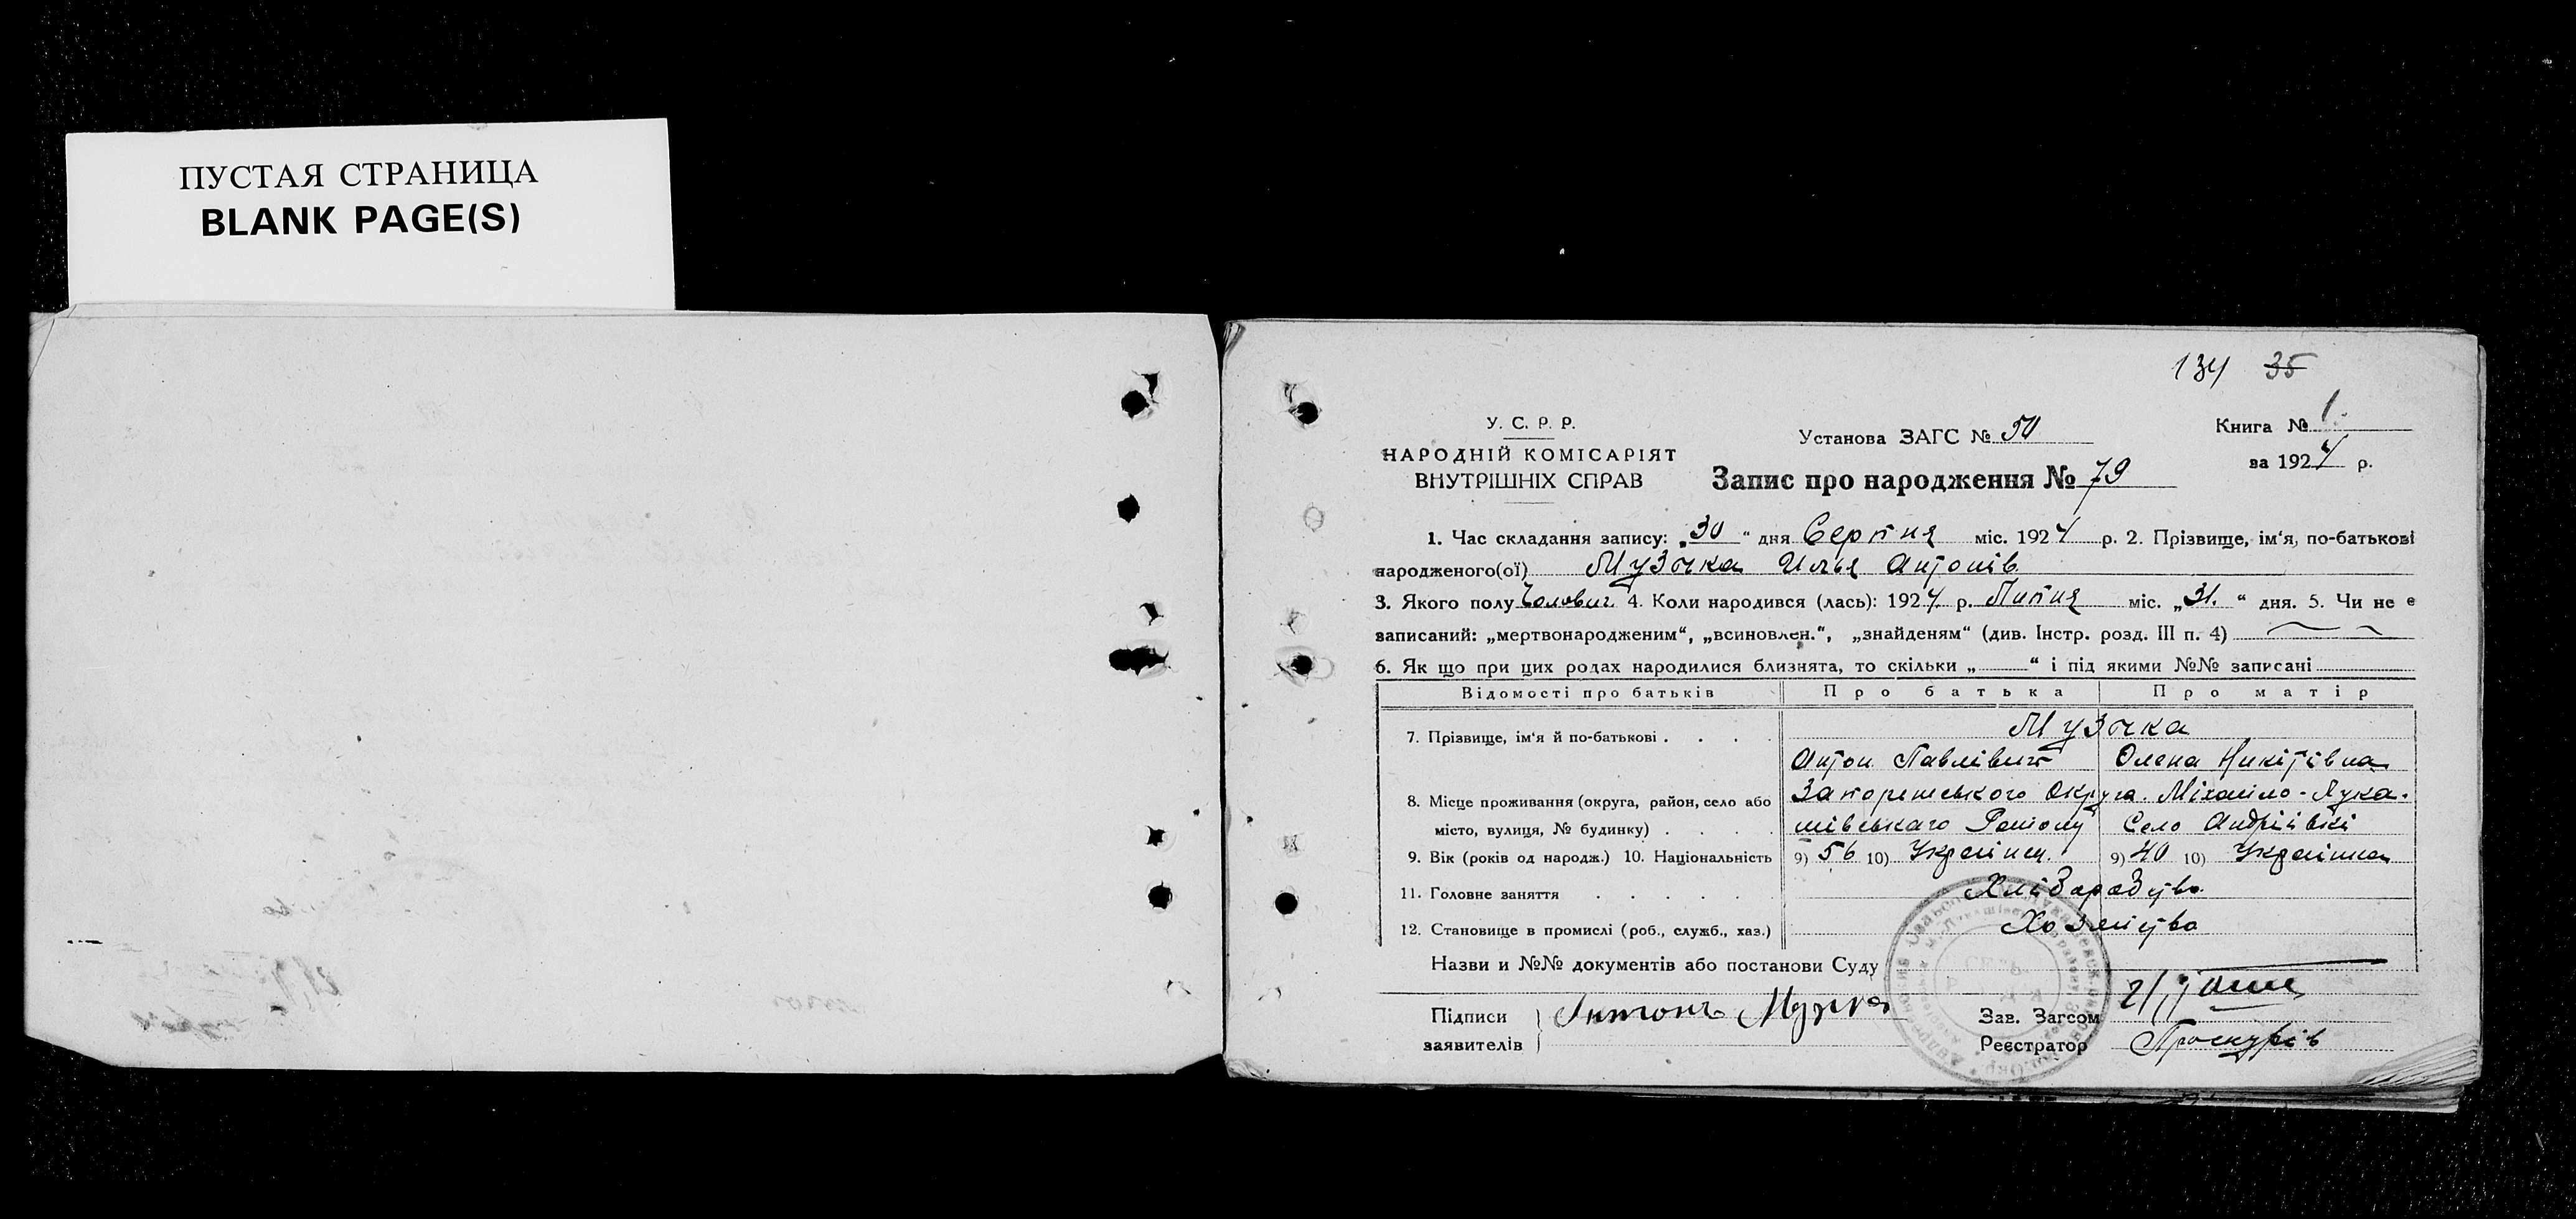 ПУСТАЯ СТРАНИЦА
BLANK PAGE(S)
134 35
У. С. Р. Р.
НАРОДНІЙ КОМІСАРІЯТ
ВНУТРІШНІХ СПРАВ
Установа ЗАГС № 50
Запис про народження № 79
Книга № 1.
за 1924 р.
1. Час складання запису: „30“ дня Серпня міс. 1924 р. 2. Прізвище, ім‘я, по-батькові
народженого(ої) Музычка Илья Антонів
3. Якого полу Чоловіч. 4. Коли народився (лась): 1924 р. Липня міс. „31.“ дня. 5. Чи не є
записаний: „мертвонародженим“, „всиновлен.“, „знайденям“ (див. Інстр. розд. III п. 4)
6. Як що при цих родах народилися близнята, то скільки „ “ і під якими №№ записані
Відомості про батьків Про батька Про матір
7. Прізвище, ім‘я й по-батькові . . . . Музычка
Антон Павлівич Олена Никітівна
8. Місце проживання (округа, район, село або Запоришського Округа. Міхайло-Лука-
місто, вулиця, № будинку) . . . . шівського Району Село Андріївкі
9. Вік (років од народж.) 10. Національність 9) 56 10) Украінец. 9) 40 10) Украінка
11. Головне заняття . . . . . . Хліборобство
12. Становище в промислі (роб., служб., хаз.) Хозяйство
Назви и №№ документів або постанови Суду
Підписи Антонъ
заявителів
Зав. Загсом
Реєстратор Проскурів